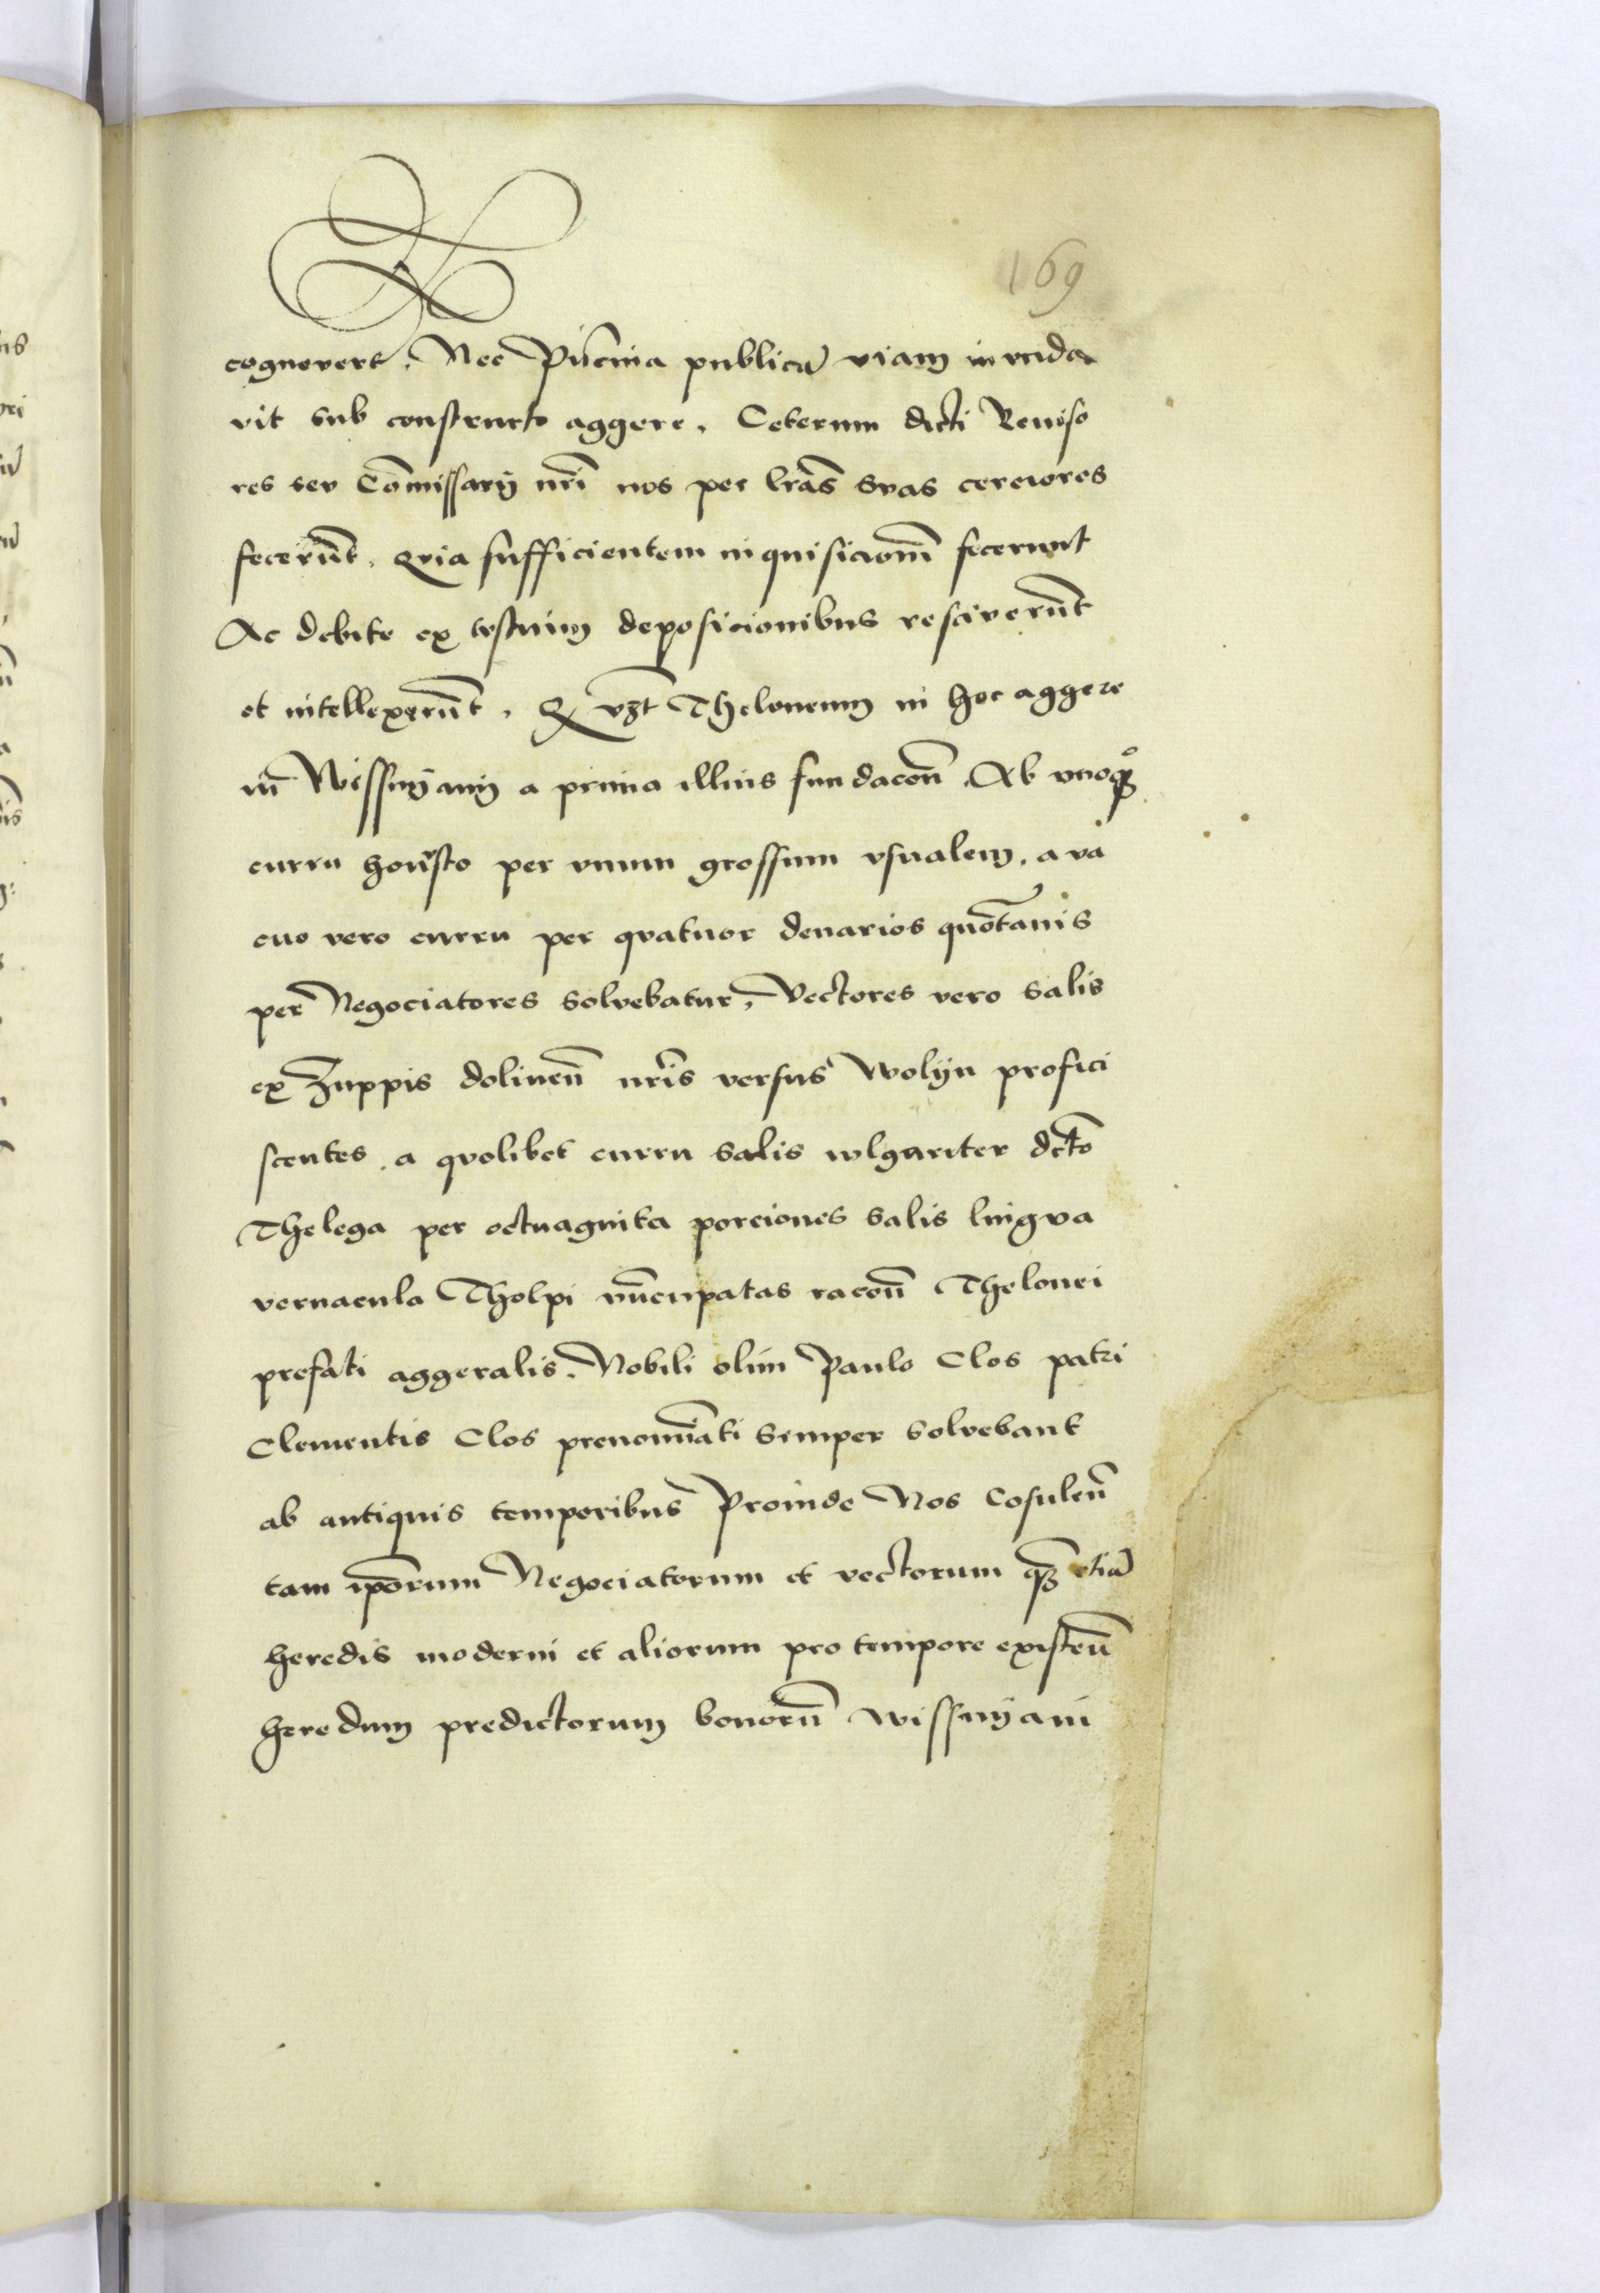 169
cognovert. Nec Piscina publicā viam inunda
vit sub constructo aggere. Ceterum dicti Reviso
res seu Cōmissarij nri̅ nos per lrās suas cerciores
fecerūt. Quia sufficientem inquisicionē fecerunt
Ac debite ex testium deposicionibus resciverūt
et intellexerūt. Q vzt Theloneum in hoc aggere
in Wissnyany a prima illius fundacoē Ab unoqͦȝ
curru honusto per unum grossum usualem. a va
cuo vero curru per quatuor denarios quotānis
per Negociatores solvebatur. Vectores vero salis
ex Zuppis dolineñ nris̅ versus Wolyn profici
scentes. a quolibet curru salis wlgariter dcto̅
Thelega per octuaginta porciones salis lingva
vernacula Tholpi nūcupatas racoē Thelonei
prefati aggeralis. Nobili olim Paulo Clos patri
Clementis Clos prenomīati semper solvebant
ab antiquis temporibus Proinde Nos Cosuleñ
tam ipōrum Negociatorum et vectorum qȝ etiā
heredis moderni et aliorum pro tempore existeñ
heredum predictorum bonorū Wissnyani